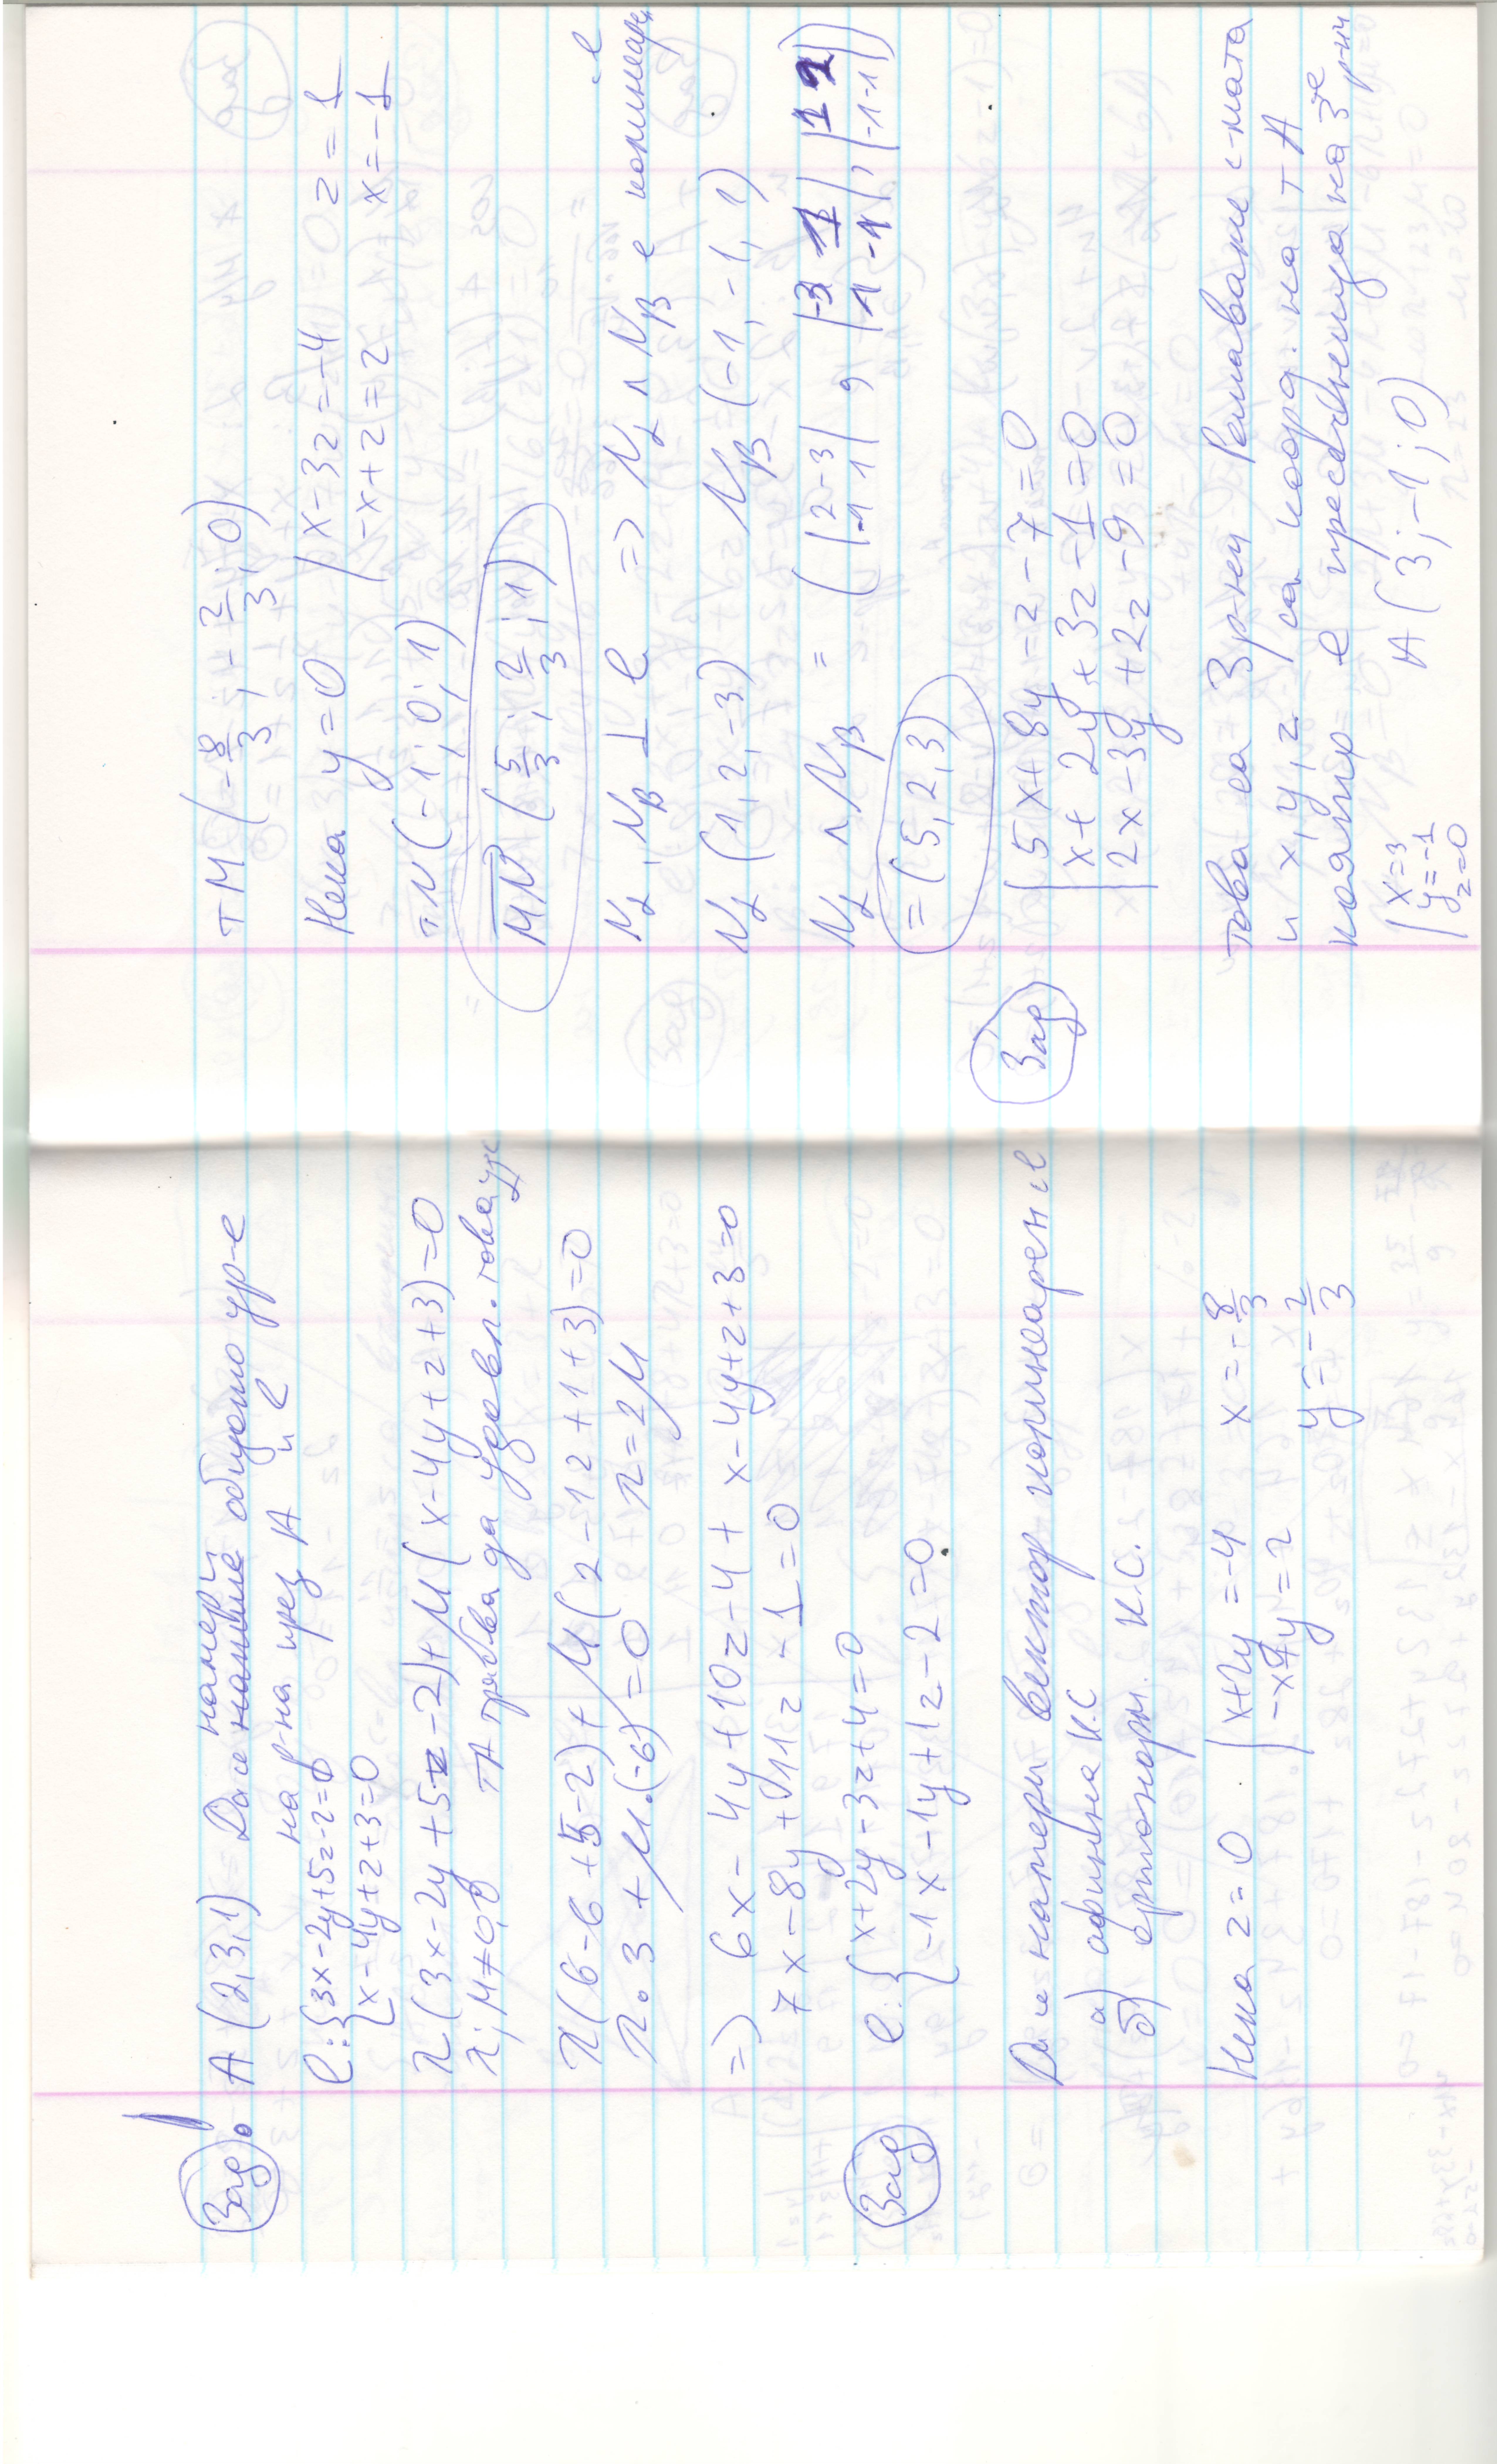 Зад. А (2,3,1) Да се намери общото ур-е
на р-на през А и l
l: {3x-2y+5z-2=0
{x-4y+z+3=0
λ(3x-2y+5z-2)+μ(x-4y+z+3)=0
λ; μ≠0,0 тА трябва да удовл. това ур-е
λ(6-6+5-2)+μ(2-12+1+3)=0
λ.3+μ.(-6)=0 λ=2μ
=> 6x-4y+10z-4+x-4y+z+3=0
7x-8y+11z-1=0
Зад l: {x+2y-3z+4=0
{-1x-1y+1z-2=0
Да се намери вектор колинеарен с l
а) афинна К.С
б) ортонорм. К.С.
Нека z=0 |x+2y=-4 x=-8/3
|-x+y=2 y=-2/3
тМ (-8/3; -2/3; 0)
Нека y=0 |x-3z=-4 z=1
|-x+z=2 x=-1
тN (-1; 0; 1)
MN (5/3; 2/3; 1)
Nα, Nβ ⊥ l => Nα ∧ Nβ е колинеарен с l
Nα (1, 2, -3) Nβ (-1, -1, 1)
Nα ∧ Nβ = (|2 -3| , |-3 1| , |1 2|)
|-1 1| |1 -1| |-1 -1|
= (5, 2, 3)
Зад |5x+8y-z-7=0
|x+2y+3z-1=0
|2x-3y+2z-9=0
това са 3 р-ни Решаваме с-мата
и x, y, z са коорд. на т А
която е пресечница на 3те р-ни
|x=3
|y=-1
|z=0
А (3; -1; 0)